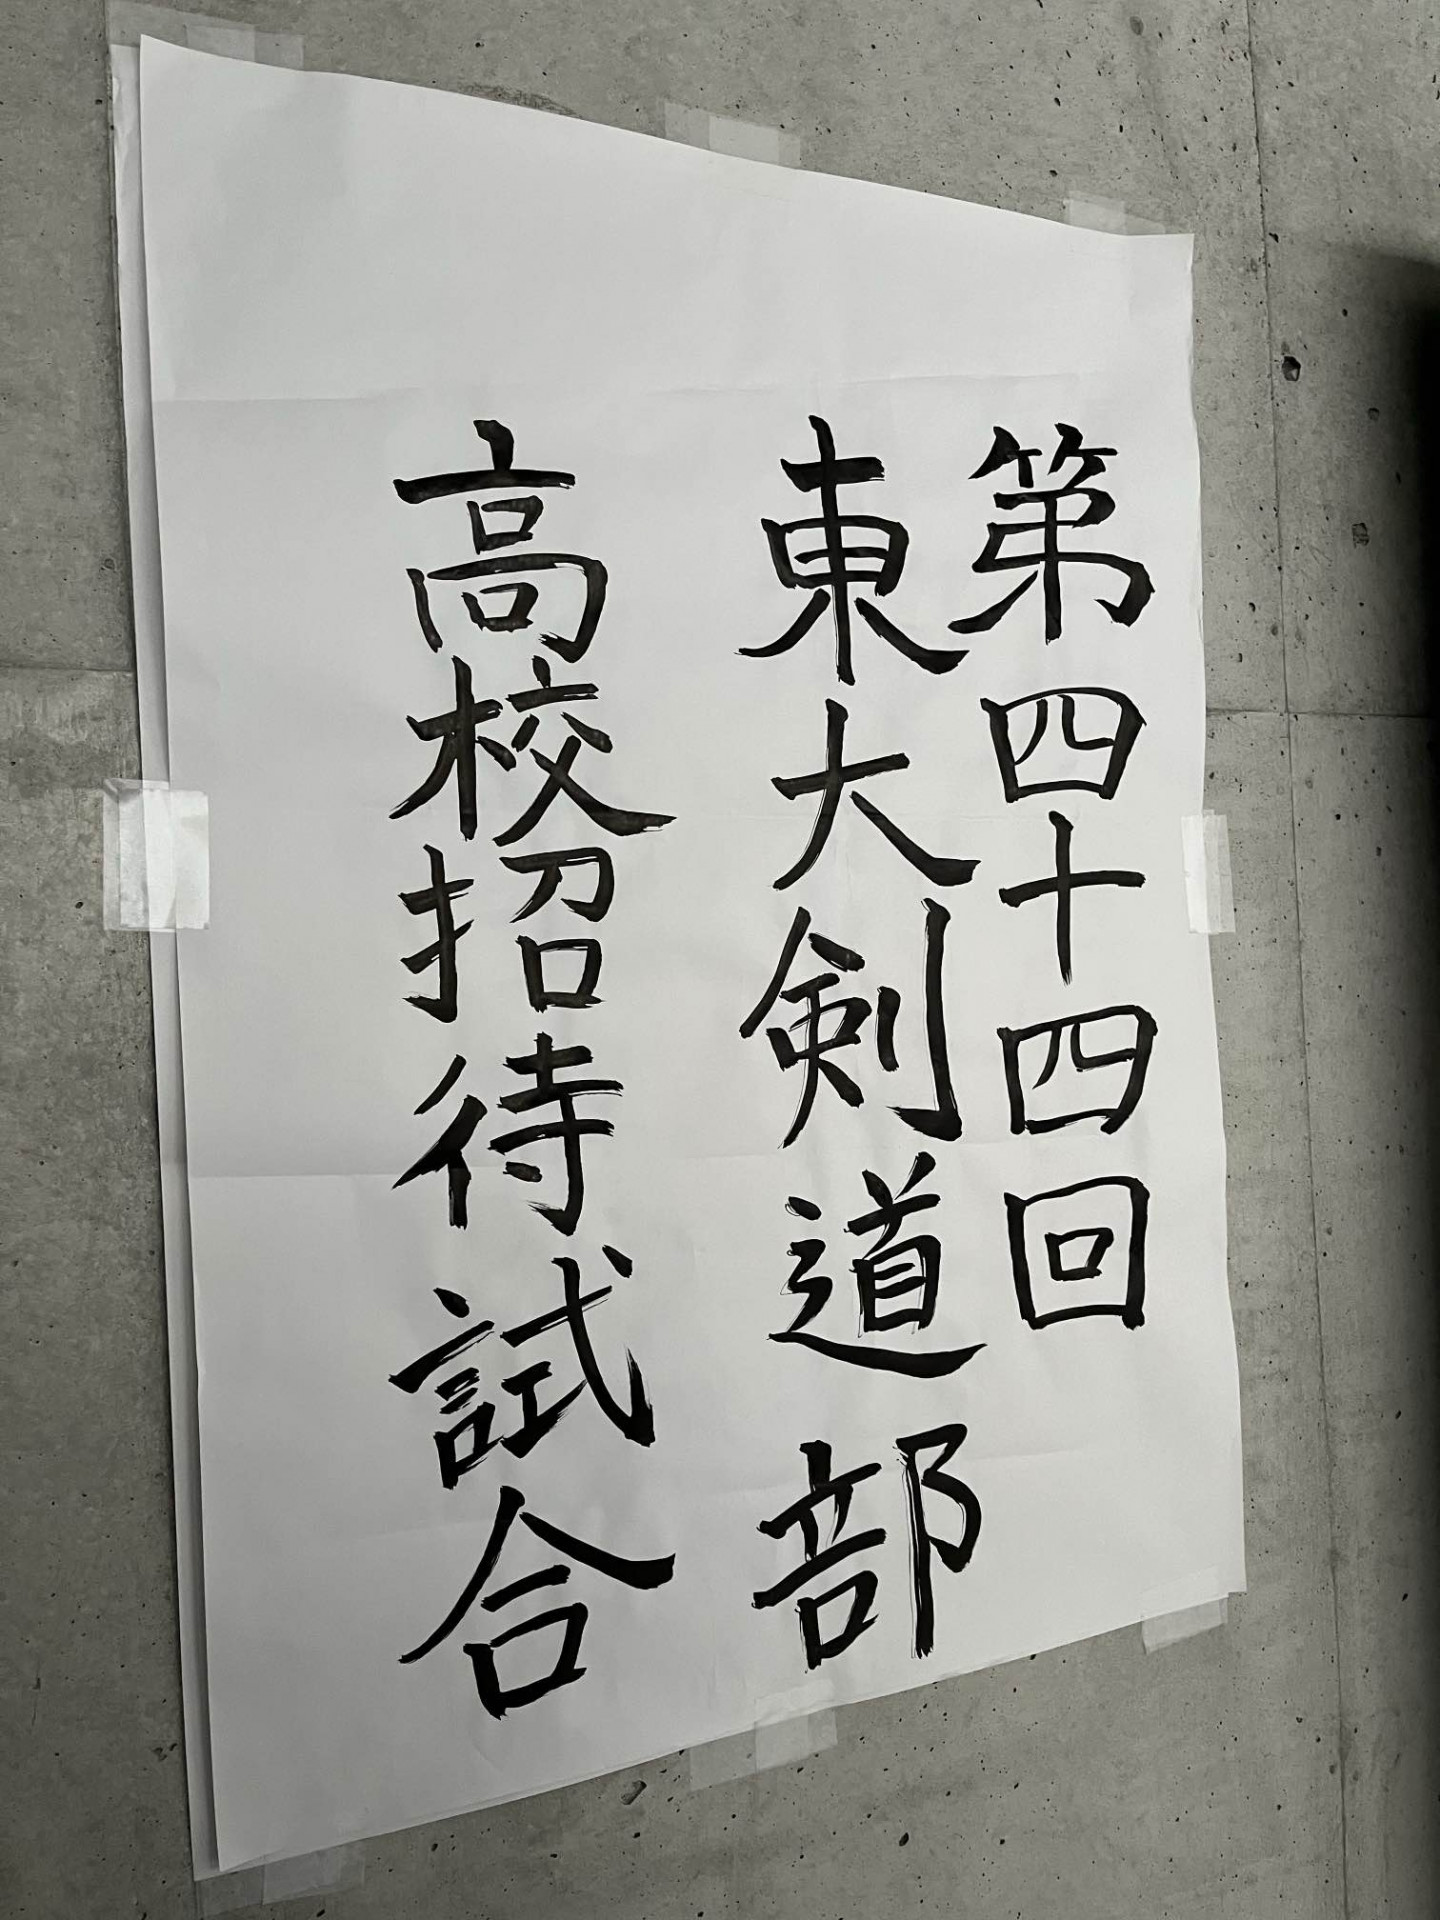 第四十四回
東大剣道部
高校招待試合